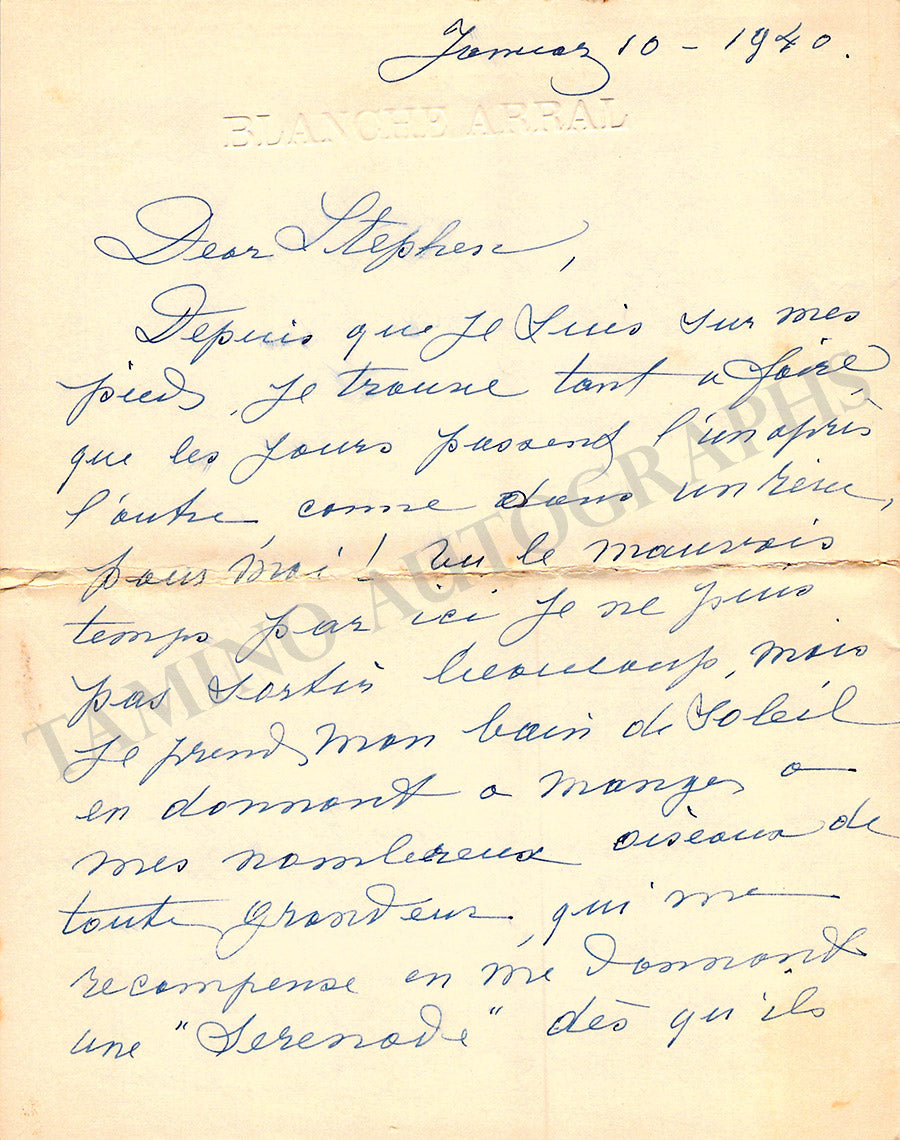 January 10 - 1940.
BLANCHE ARRAL
Dear Stephen,
Depuis que je suis sur mes
pieds, je trouve tant a faire
que les jours passent l'un après
l'autre comme dans un rêve,
pour moi! Vu le mauvais
temps par ici je ne puis
pas sortir beaucoup, mais
je prends mon bain de Soleil
en donnant a manger a
mes nombreux oiseaux de
toute grandeur, qui me
recompense en me donnant
une "Serenade" dès qu'ils
TAMINO AUTOGRAPHS